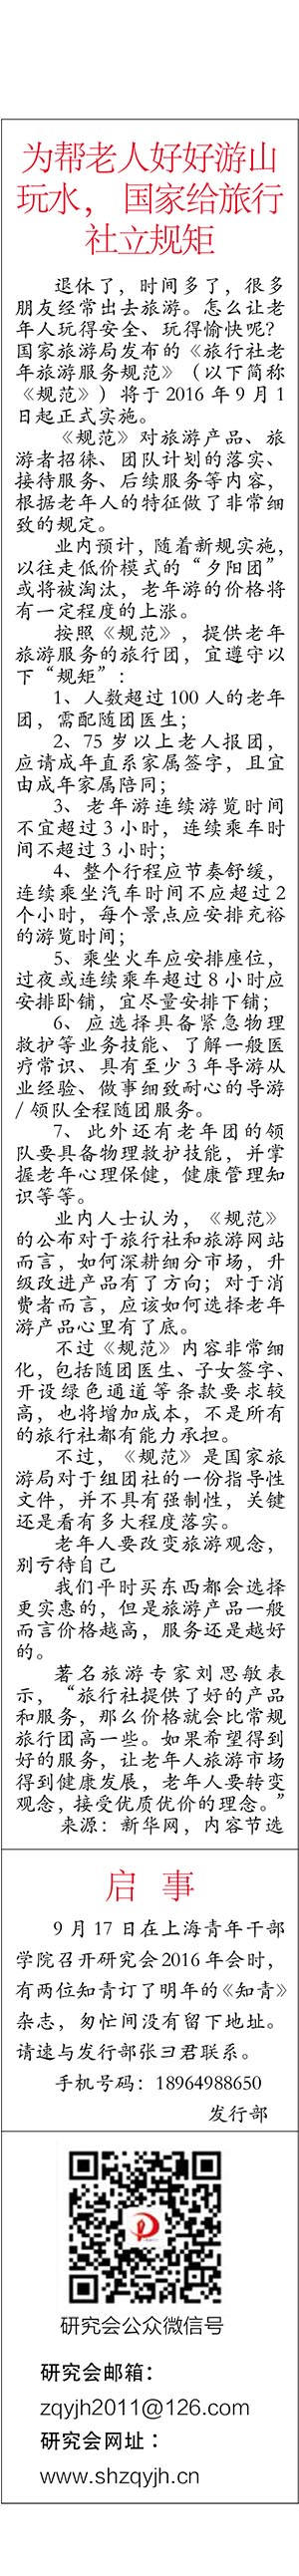 为帮老人好好游山
玩水，国家给旅行
社立规矩
退休了，时间多了，很多
朋友经常出去旅游。怎么让老
年人玩得安全、玩得愉快呢？
国家旅游局发布的《旅行社老
年旅游服务规范》（以下简称
《规范》）将于 2016 年 9 月 1
日起正式实施。
《规范》对旅游产品、旅
游者招徕、团队计划的落实、
接待服务、后续服务等内容，
根据老年人的特征做了非常细
致的规定。
业内预计，随着新规实施，
以往走低价模式的“夕阳团”
或将被淘汰，老年游的价格将
有一定程度的上涨。
按照《规范》，提供老年
旅游服务的旅行团，宜遵守以
下“规矩”：
1、人数超过 100 人的老年
团，需配随团医生；
2、75 岁以上老人报团，
应请成年直系家属签字，且宜
由成年家属陪同；
3、老年游连续游览时间
不宜超过 3 小时，连续乘车时
间不超过 3 小时；
4、整个行程应节奏舒缓，
连续乘坐汽车时间不应超过 2
个小时，每个景点应安排充裕
的游览时间；
5、乘坐火车应安排座位，
过夜或连续乘车超过 8 小时应
安排卧铺，宜尽量安排下铺；
6、应选择具备紧急物理
救护等业务技能、了解一般医
疗常识、具有至少 3 年导游从
业经验、做事细致耐心的导游
/ 领队全程随团服务。
7、此外还有老年团的领
队要具备物理救护技能，并掌
握老年心理保健，健康管理知
识等等。
业内人士认为，《规范》
的公布对于旅行社和旅游网站
而言，如何深耕细分市场，升
级改进产品有了方向；对于消
费者而言，应该如何选择老年
游产品心里有了底。
不过《规范》内容非常细
化，包括随团医生、子女签字、
开设绿色通道等条款要求较
高，也将增加成本，不是所有
的旅行社都有能力承担。
不过，《规范》是国家旅
游局对于组团社的一份指导性
文件，并不具有强制性，关键
还是看有多大程度落实。
老年人要改变旅游观念，
别亏待自己
我们平时买东西都会选择
更实惠的，但是旅游产品一般
而言价格越高，服务还是越好
的。
著名旅游专家刘思敏表
示，“旅行社提供了好的产品
和服务，那么价格就会比常规
旅行团高一些。如果希望得到
好的服务，让老年人旅游市场
得到健康发展，老年人要转变
观念，接受优质优价的理念。”
来源：新华网，内容节选
启 事
9 月 17 日在上海青年干部
学院召开研究会 2016 年会时，
有两位知青订了明年的《知青》
杂志，匆忙间没有留下地址。
请速与发行部张彐君联系。
手机号码：18964988650
发行部
研究会公众微信号
研究会邮箱：
zqyjh2011@126.com
研究会网址：
www.shzqyjh.cn